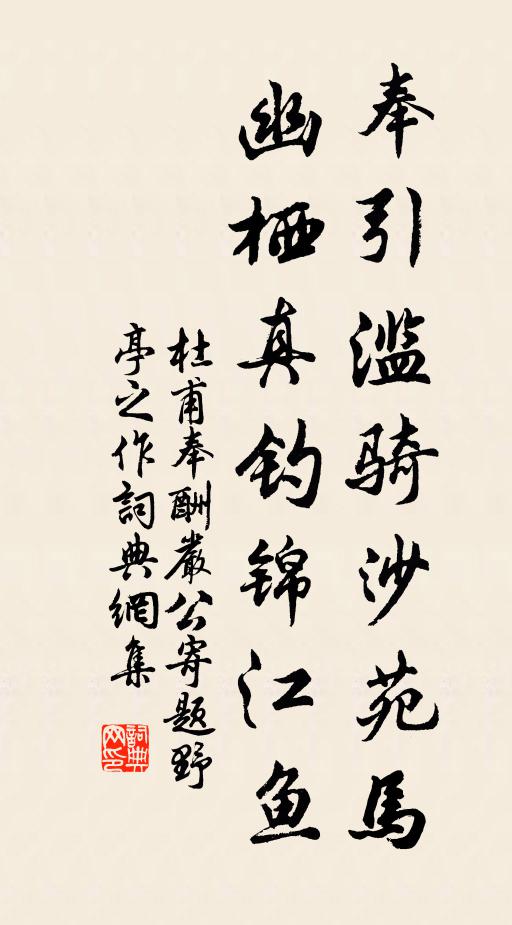 奉引滥骑沙苑馬
幽栖真钓锦江鱼
杜甫奉酬嚴公寄題野
亭之作詞典網集
詞典
网印